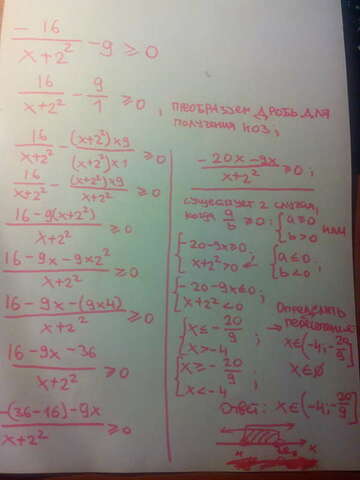 - 16 / x+2² - 9 ≥ 0
16 / x+2² - 9 / 1 ≥ 0, преобразуем дробь для
получения НОЗ;
16 / x+2² - (x+2²)×9 / (x+2²)×1 ≥ 0
16 / x+2² - (x+2²)×9 / x+2² ≥ 0
16-9(x+2²) / x+2² ≥ 0
16-9x-9×2² / x+2² ≥ 0
16-9x-(9×4) / x+2² ≥ 0
16-9x-36 / x+2² ≥ 0
-(36-16)-9x / x+2² ≥ 0
-20x-9x / x+2² ≥ 0;
существует 2 случая,
когда a / b ≥ 0: { a ≥ 0 b > 0 или
{ -20-9x ≥ 0; x+2² > 0 { a ≤ 0; b < 0
{ -20-9x ≤ 0; x+2² < 0
Определить
{ x ≤ - 20/9; x > -4 → пересечение
x ∈ (-4; -20/9]
{ x ≥ - 20/9; x < -4 x ∈ ∅
Ответ: x ∈ (-4; -20/9]
x x